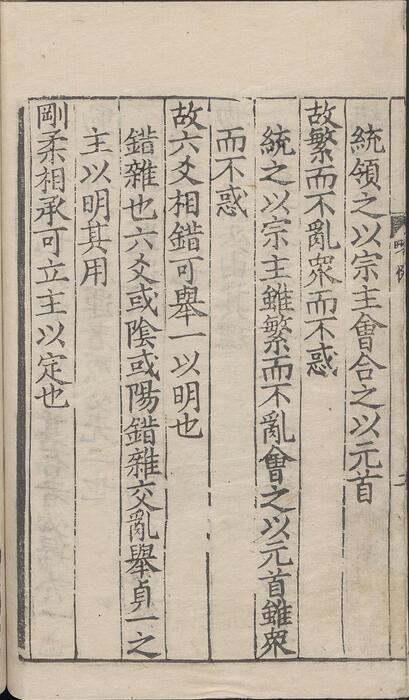 統領之以宗主會合之以元首
故繁而不亂衆而不惑
統之以宗主雖繁而不亂會之以元首雖衆
而不惑
故六爻相錯可舉一以明也
錯雜也六爻或陰或陽錯雜交亂舉貞一之
主以明其用
剛柔相承可立主以定也